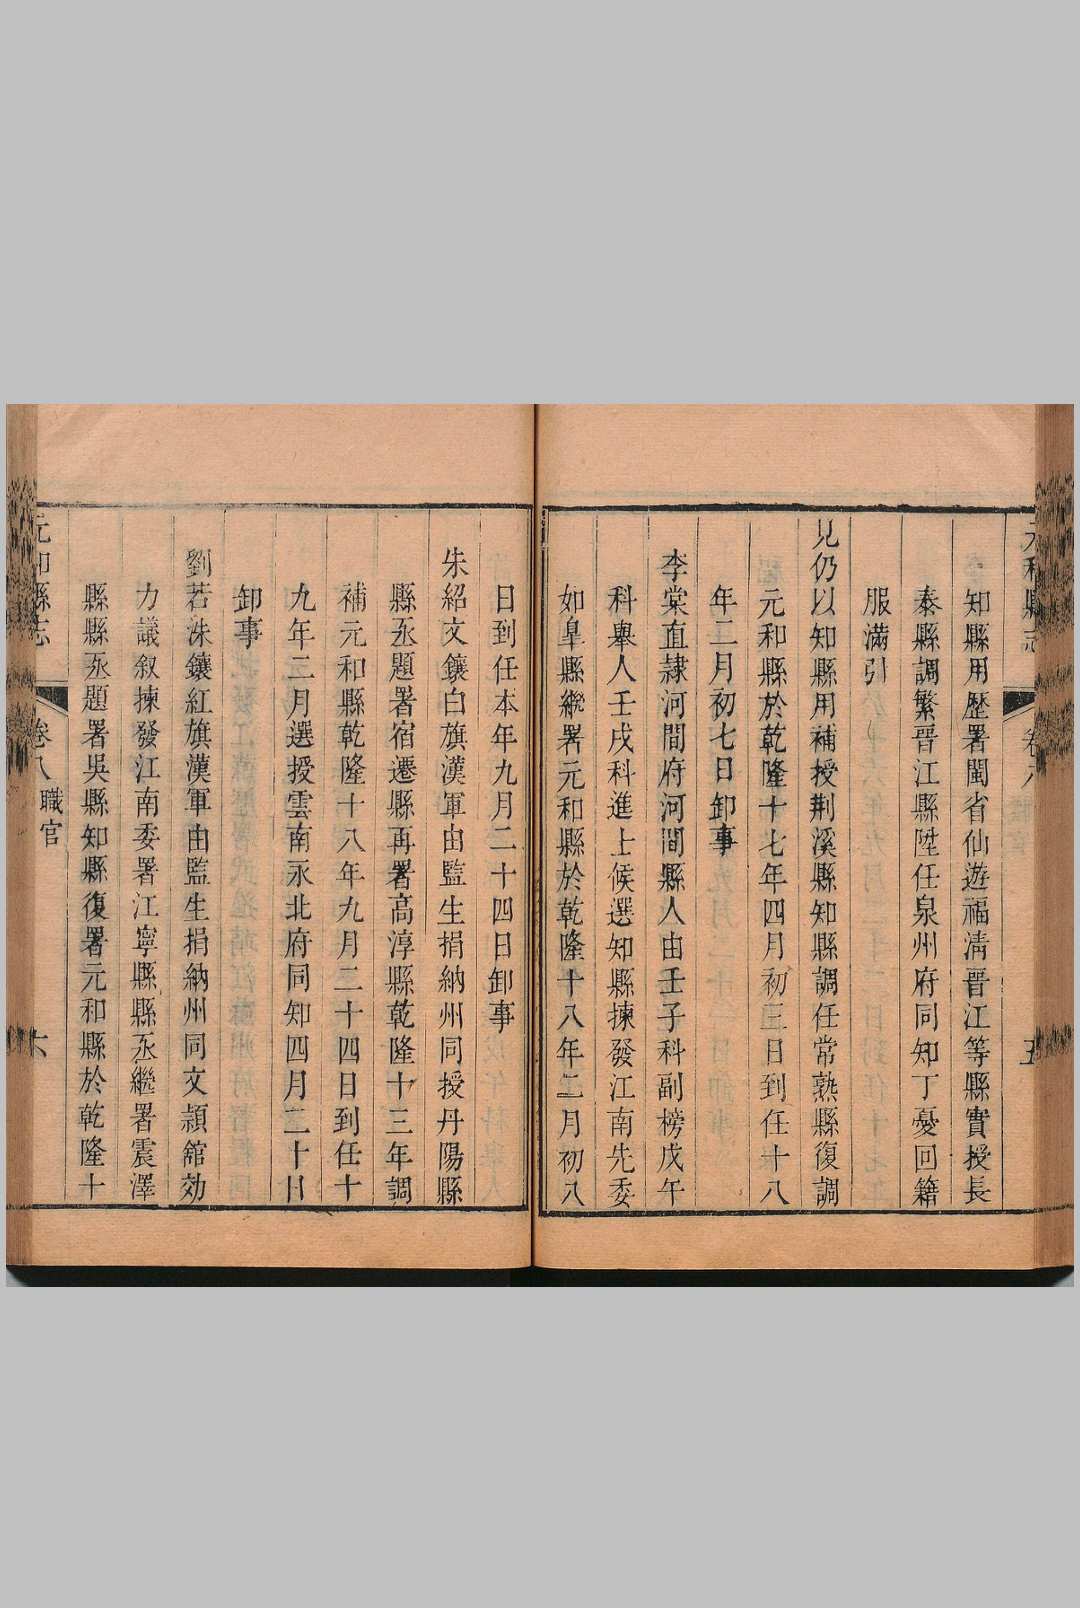 元和縣志
卷八
五
知縣用歷署閩省仙遊福淸晉江等縣實授長
泰縣調繁晉江縣陞任泉州府同知丁憂回籍
服滿引
見仍以知縣用補授荆溪縣知縣調任常熟縣復調
元和縣於乾隆十七年四月初三日到任十八
年二月初七日卸事
李棠直隷河間府河間縣人由壬子科副榜戊午
科舉人壬戌科進士候選知縣揀發江南先委
如皐縣繼署元和縣於乾隆十八年二月初八
日到任本年九月二十四日卸事
朱紹文鑲白旗漢軍由監生捐納州同授丹陽縣
縣丞題署宿遷縣再署高淳縣乾隆十三年調
補元和縣乾隆十八年九月二十四日到任十
九年二月選授雲南永北府同知四月二十日
卸事
劉若洙鑲紅旗漢軍由監生捐納州同文頴舘効
力議叙揀發江南委署江寧縣縣丞繼署震澤
縣縣丞題署吳縣知縣復署元和縣於乾隆十
元和縣志
卷八 職官
六